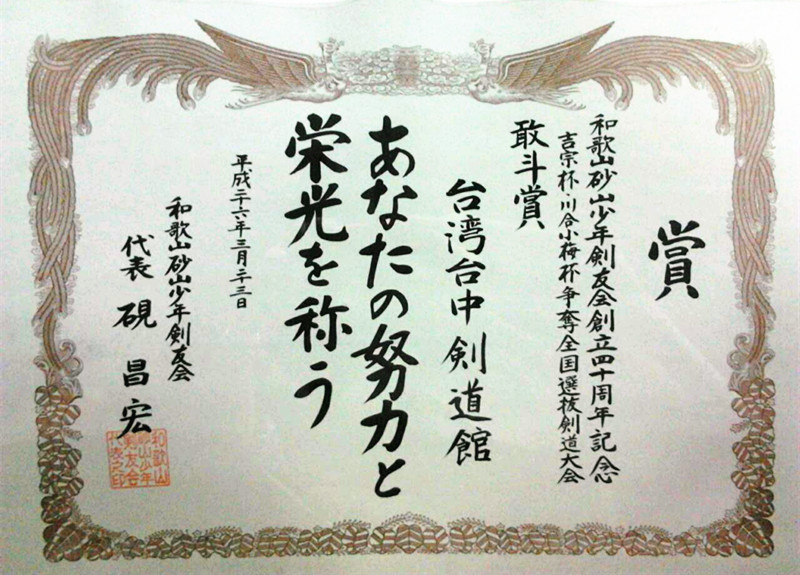 賞
和歌山砂山少年剣友会創立四十周年記念
吉宗杯・川合小梅杯争奪全国選抜剣道大会
敢斗賞
台湾台中剣道館
あなたの努力と
栄光を称う
平成二十六年三月二十三日
和歌山砂山少年剣友会
代表 硯 昌宏
和歌山
砂山少年
剣友会
代表之印